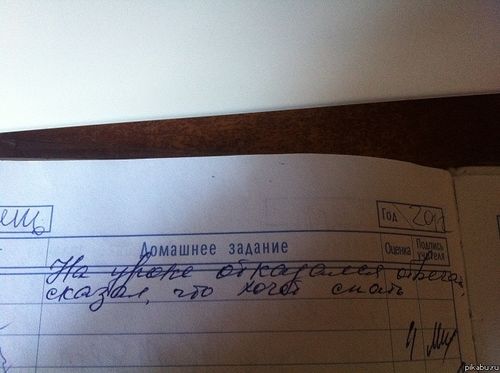 Год
Домашнее задание Оценка Подпись учителя
На уроке отказался отвечать,
сказал, что хочет спать
pikabu.ru